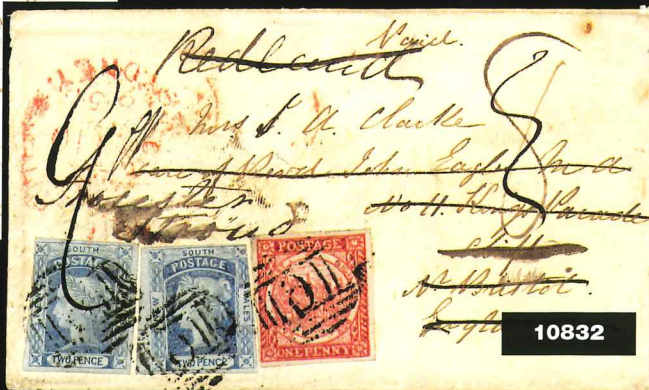 Paid.
Redland
Mrs J. A. Clarke
care of Revd John Eagles M A
No 11. Kings Parade
Clifton
Nr Bristol.
England
Stroud
SOUTH
POSTAGE
TWO PENCE
SOUTH
POSTAGE
WALES
TWO PENCE
POSTAGE
ONE PENNY
10832